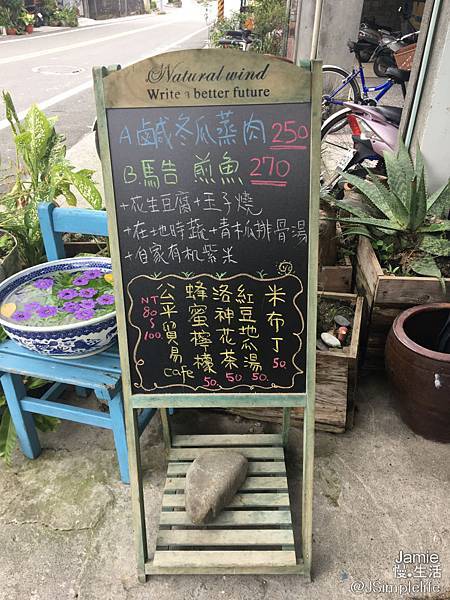 Natural wind
Write a better future
A鹹冬瓜蒸肉 250
B.馬告 煎魚 270
+花生豆腐+玉子燒
+在地時蔬+青木瓜排骨湯
+自家有机紫米
米布丁 50.
紅豆地瓜湯 50.
洛神花茶 50
蜂蜜檸檬 50.
公平貿易 cafe
NT 80~100.
Jamie
慢.生活
@JSimplelife